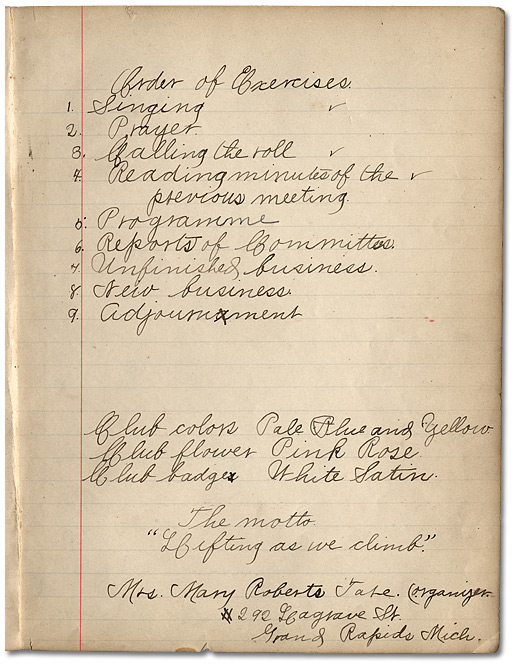 Order of Exercises.
1. Singing ✓
2. Prayer
3. Calling the roll ✓
4. Reading minutes of the ✓
previous meeting.
5. Programme
6. Reports of Committes.
7. Unfinished business.
8. New business.
9. Adjournment
Club colors Pale Blue and Yellow
Club flower Pink Rose.
Club badge White Satin.
The motto.
"Lifting as we climb".
Mrs. Mary Roberts Tate. (organizer
292 Lagrave St.
Grand Rapids Mich.